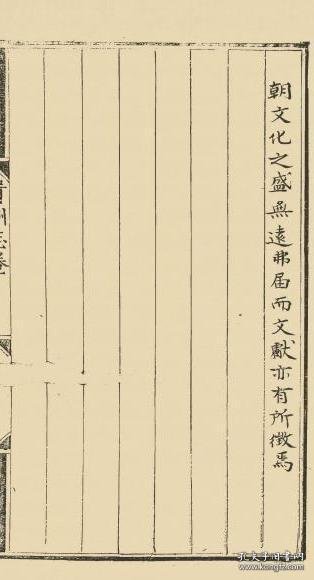 朝文化之盛無遠弗届而文獻亦有所徵焉
志卷
孔夫子旧书网
www.kongfz.com